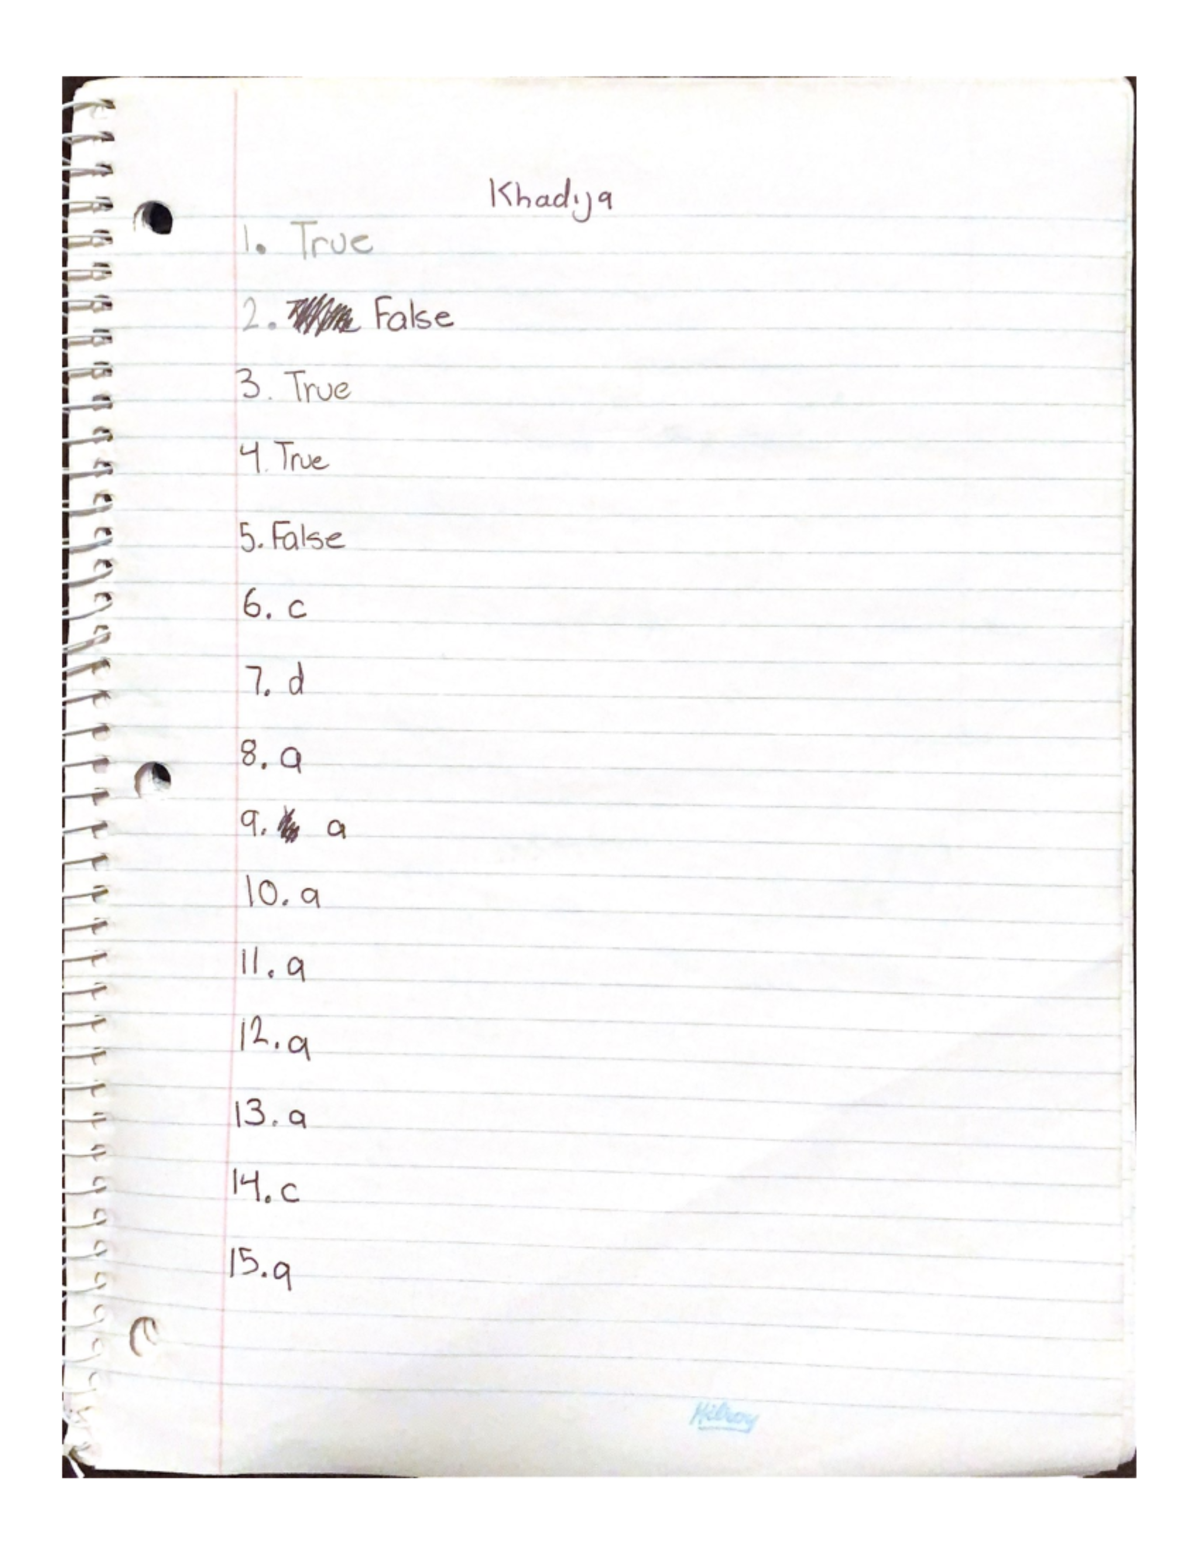 Khadija
1. True
2. False
3. True
4. True
5. False
6. c
7. d
8. a
9. a
10. a
11. a
12. a
13. a
14. c
15. a
Hilroy